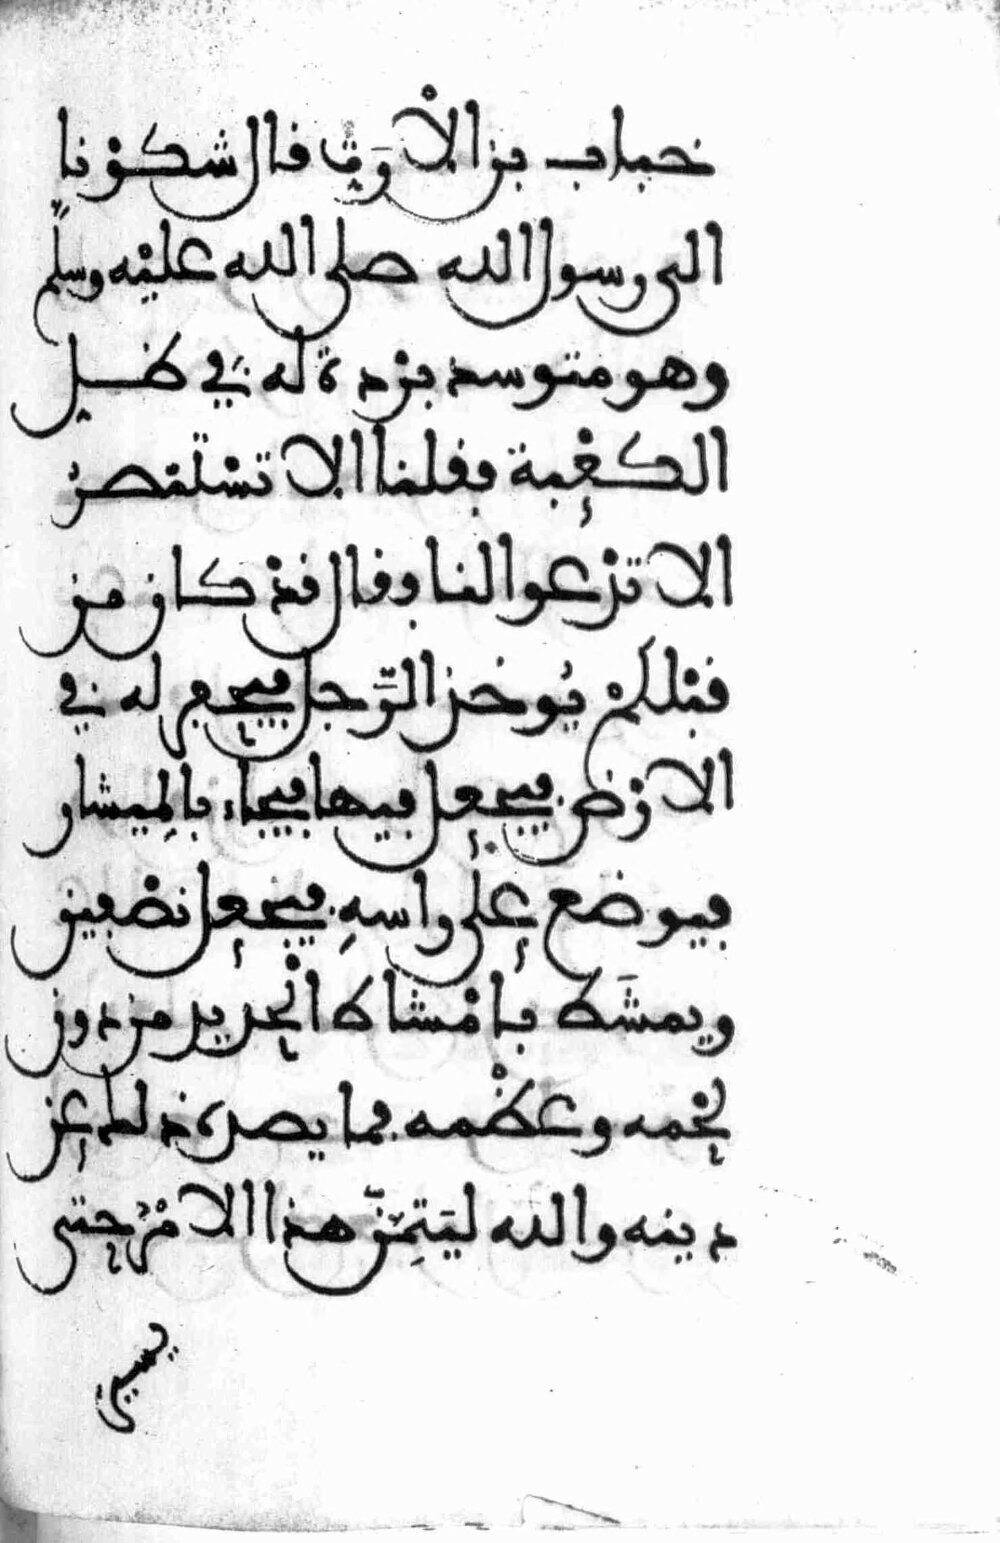 خباب بن الأرت قال شكونا
الى رسول الله صلى الله عليه وسلم
وهو متوسد بردة له في ظل
الكعبة فقلنا الا تستنصر
الا تدعوا لنا وقال قد كان من
قبلكم يوخذ الرّجل فيحفر له في
الارض فيجعل فيها فيجاء بالميشار
فيوضع على راسه فيجعل نصفين
ويمشط بامشاط الحديد من دون
لحمه وعظمه فما يصده ذلك عن
دينه والله ليتمّنّ هذا الامر حتى
يسير